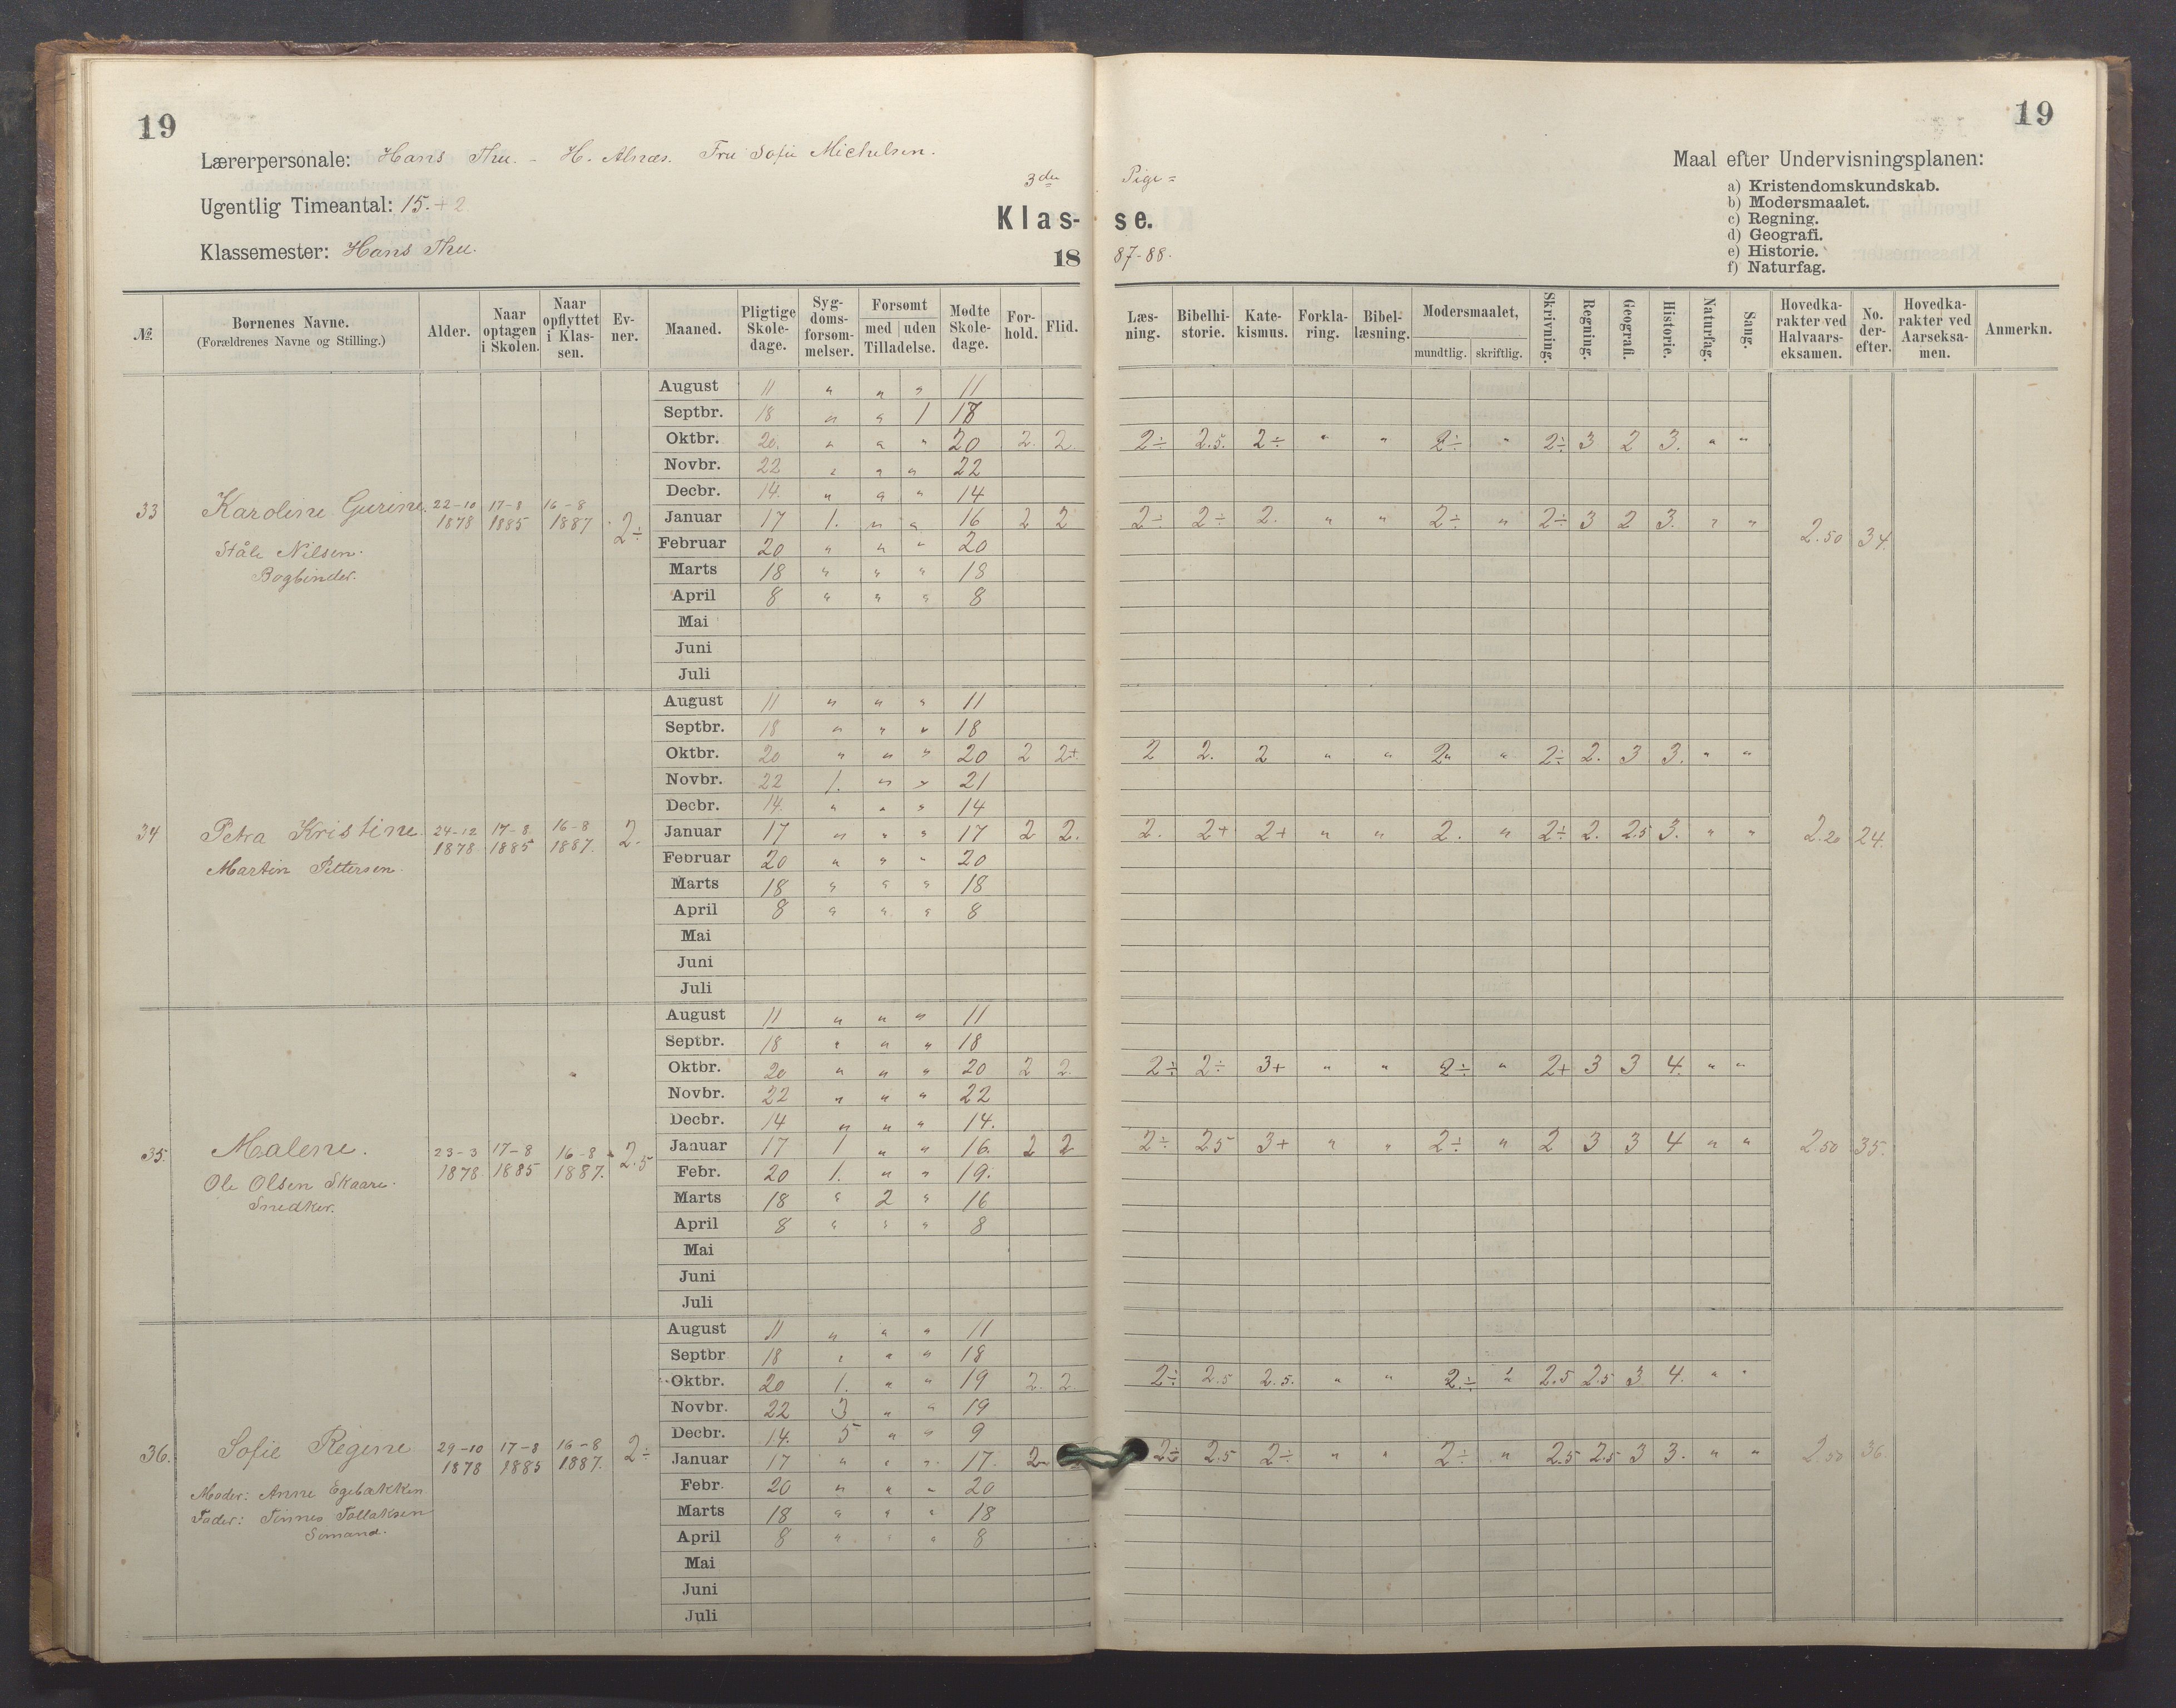 19
19
Lærerpersonale: Hans Thu. - H. Alnæs. Fru Sofie Michelsen.
Ugentlig Timeantal: 15.+2
Klassemester: Hans Thu.
3die Pige=
Klasse.
1887-88.
Maal efter Undervisningsplanen:
a) Kristendomskundskab.
b) Modersmaalet.
c) Regning.
d) Geografi.
e) Historie.
f) Naturfag.
№ Børnenes Navne. (Forældrenes Navne og Stilling.) Alder. Naar optagen i Skolen. Naar opflyttet i Klassen. Evner. Maaned. Pligtige Skoledage. Sygdomsforsømmelser. Forsømt med uden Tilladelse. Mødte Skoledage. Forhold. Flid. Læsning. Bibelhistorie. Katekismus. Forklaring. Bibellæsning. Modersmaalet, mundtlig. skriftlig. Skrivning. Regning. Geografi. Historie. Naturfag. Sang. Hovedkarakter ved Halvaarseksamen. No. derefter. Hovedkarakter ved Aarseksamen. Anmerkn.
33 Karoline Gurine. 22-10 1878 17-8 1885 16-8 1887 2÷ 2.50 34.
Ståle Nilsen.
Bogbinder.
August 11 " " " 11
Septbr. 18 " " 1 18
Oktbr. 20. " " " 20 2. 2. 2÷ 2.5. 2÷ " " 2÷ " 2÷ 3 2 3. " "
Novbr. 22 " " " 22
Decbr. 14. " " " 14
Januar 17 1. " " 16 2 2 2÷ 2÷ 2. " " 2÷ " 2÷ 3 2 3. " "
Februar 20 " " " 20
Marts 18 " " " 18
April 8 " " " 8
Mai
Juni
Juli
34 Petra Kristine. 24-12 1878 17-8 1885 16-8 1887. 2. 2.20 24.
Martin Pettersen.
August 11 " " " 11
Septbr. 18 " " " 18
Oktbr. 20 " " " 20 2 2+ 2 2. 2 " " 2 " 2÷ 2. 3 3. " "
Novbr. 22 1. " " 21
Decbr. 14. " " " 14
Januar 17 " " " 17 2 2. 2. 2+ 2+ " " 2. " 2÷ 2. 2.5 3. " "
Februar 20 " " " 20
Marts 18 " " " 18
April 8 " " " 8
Mai
Juni
Juli
35. Malene. 23-3 1878. 17-8 1885 16-8 1887. 2.5 2.50 35.
Ole Olsen Skaare.
Snedker.
August 11 " " " 11
Septbr. 18 " " " 18
Oktbr. 20 " " " 20 2 2. 2÷ 2÷ 3+ " " 2÷ " 2+ 3 3 4. " "
Novbr. 22 " " " 22
Decbr. 14 " " " 14.
Januar 17 1 " " 16. 2 2 2÷ 25 3+ " " 2÷ " 2 3 3 4 " "
Febr. 20 1. " " 19.
Marts 18 " 2 " 16
April 8 " " " 8
Mai
Juni
Juli
36. Sofie Regine 29-10 1878 17-8 1885 16-8 1887. 2÷ 2.50 36.
Moder: Anne Egebakken
Fader: Tønnes Tollaksen
Sømand.
August 11 " " " 11
Septbr 18 " " " 18
Oktbr. 20 1. " " 19 2. 2. 2÷ 2.5 2.5. " " 2÷ " 2.5 2.5 3 4. " "
Novbr. 22 3 " " 19
Decbr. 14. 5 " " 9
Januar 17 " " " 17. 2. 2÷ 2.5 2÷ " " 2÷ " 2.5 2.5 3 3. " "
Febr. 20 " " " 20
Marts 18 " " " 18
April 8 " " " 8
Mai
Juni
Juli